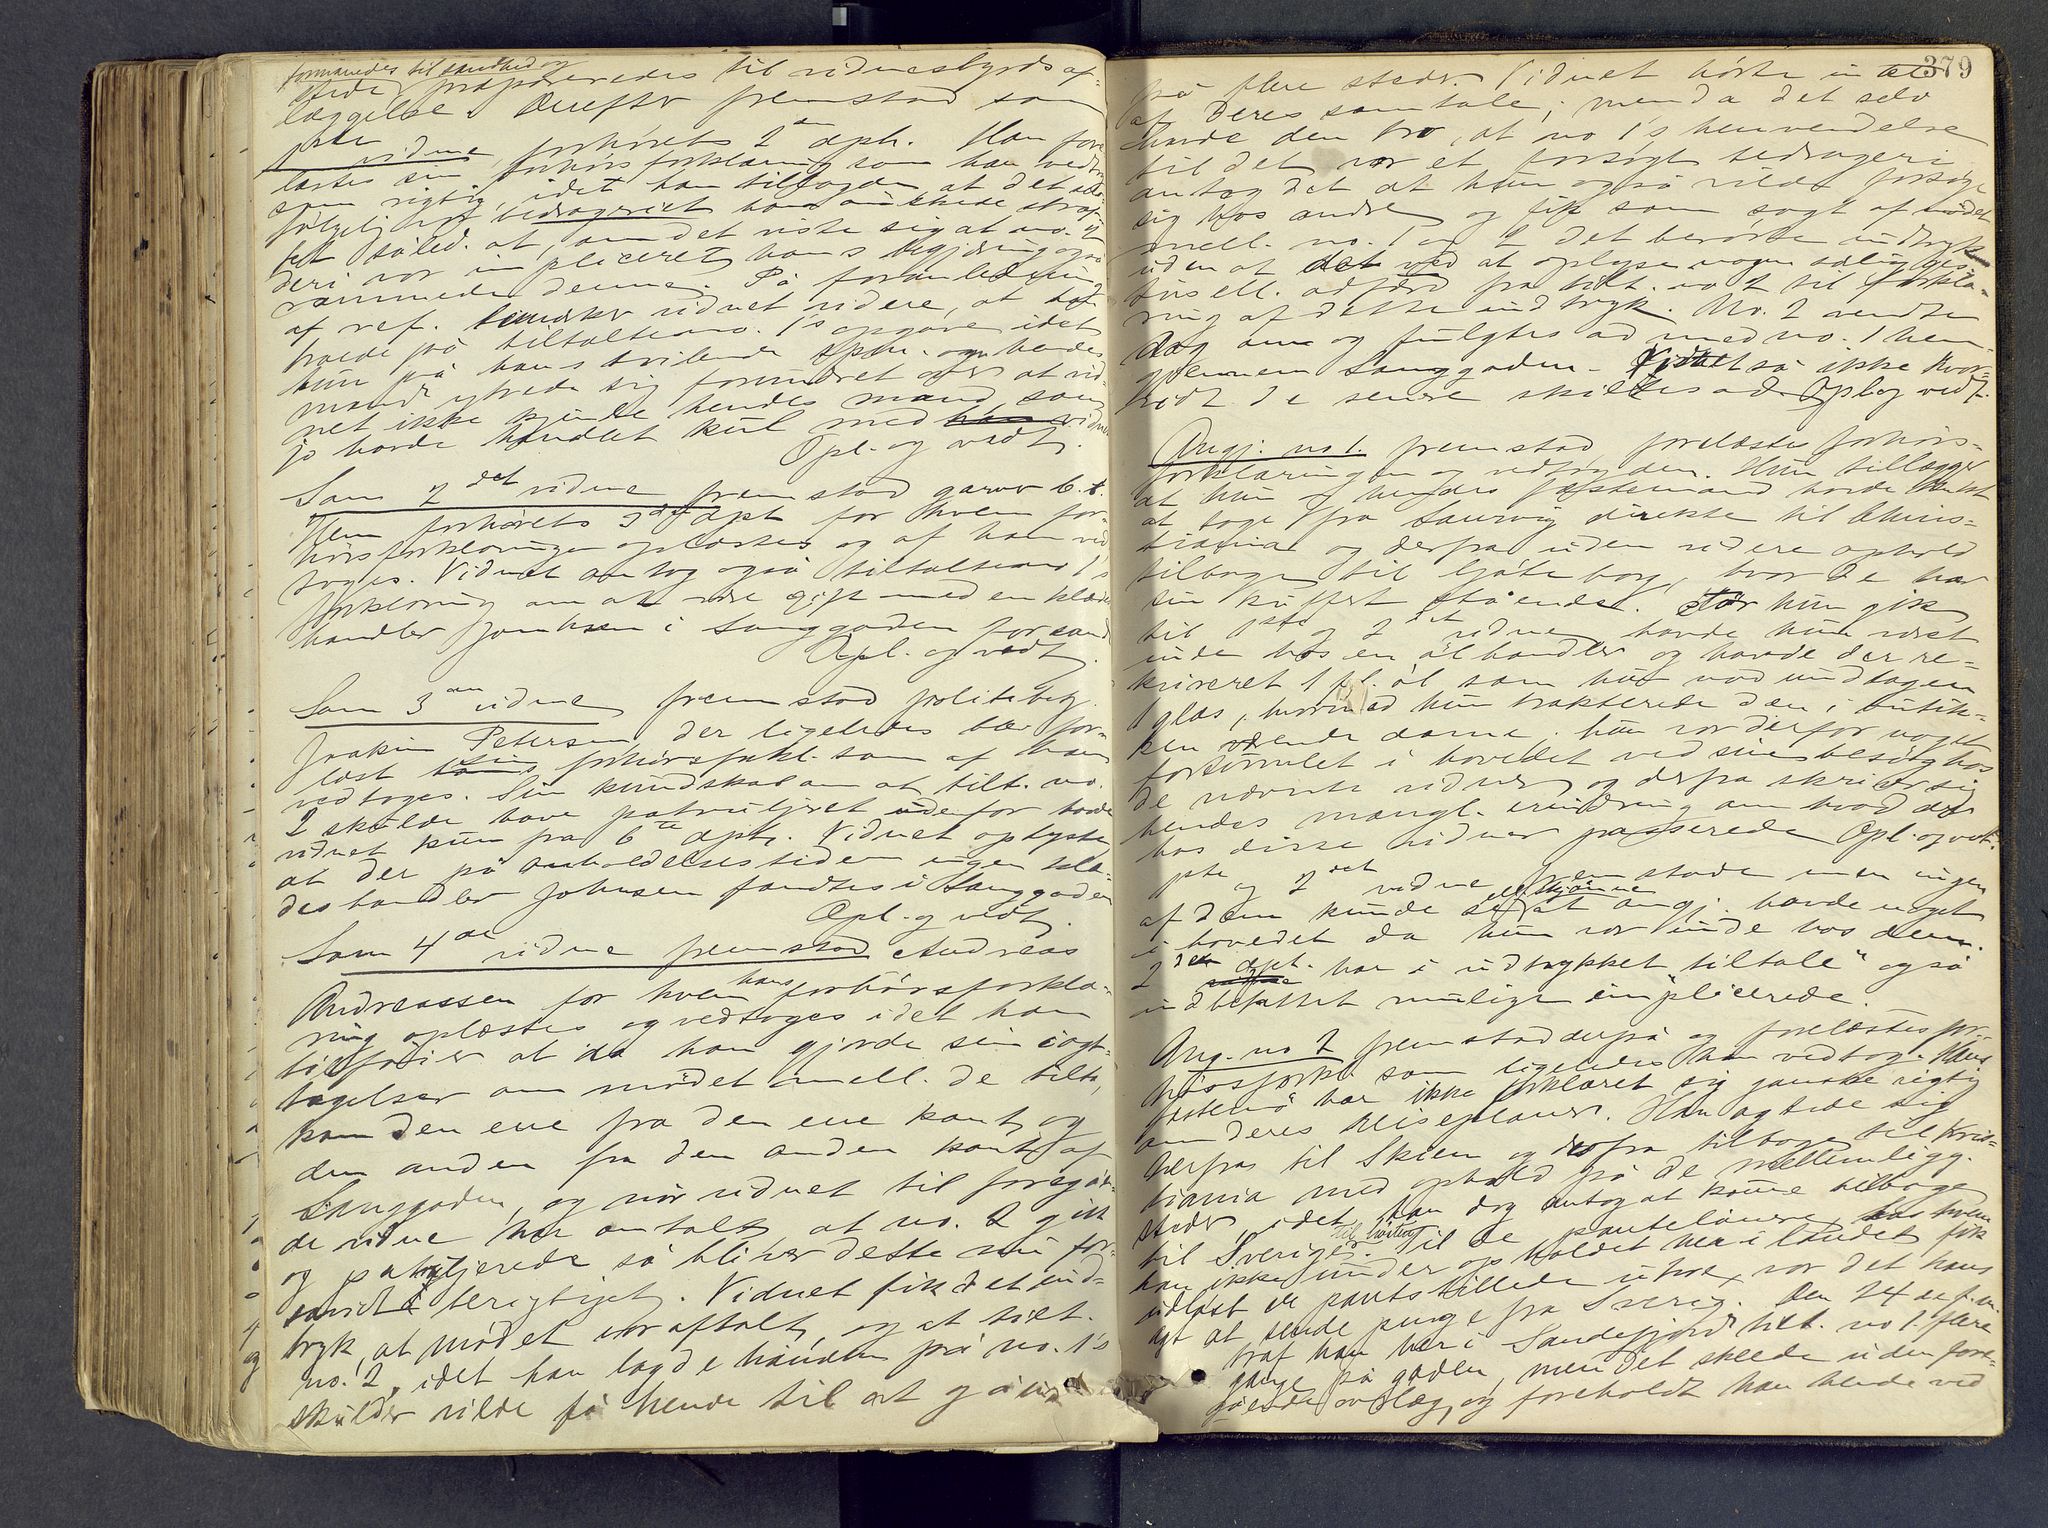 formanedes til sandhed og
stede præpareredes til vidnesbyrds af-
læggelse. Derefter fremstod som
1ste vidne forhørets 2den dpt. Han fore-
læstes sin forhørsforklaring som han vedtog
som rigtig, idet han tilføyden at det selv-
følgelig var bedrageriet han ønskede straf-
fet såled. at, om det viste sig at no. 2
deri var impliceret hans begjæring også
rammede denne. På foranledning
af ref. bemærker vidnet videre, at
troede på tiltaltes no. 1's opgave idet
hun på hans tvilende spm. om hendes
mand ytrede sig forundret over at vid-
net ikke kjendte hendes mand som
jo havde handlet kul med vidnet
Opl. og vedt.
Som 2det vidne fremstod garver C. A.
Hem forhørets 3die dpt for hvem for-
hørsforklaringen oplæstes og af ham ved-
toges. Vidnet antog også tiltaltes no 1's
forklaring om at være gift med en klædes-
handler Johnsen i Langgaden for sand
Opl. og vedt.
Som 3die vidne fremstod politibetj.
Joakim Petersen der ligeledes blev fore-
læst sin forhørsforkl. som af ham
vedtoges. Sin kundskab om at tilt. no.
2 skulde have patruljeret udenfor havde
vidnet kun fra 6te dpt. Vidnet oplyste
at der på anholdelsestiden ingen klæ-
deshandler Johnsen fandtes i Langgaden
Opl. og vedt.
Som 4de vidne fremstod Andreas
Andreassen for hvem hans forhørsforkla-
ring oplæstes og vedtoges idet han
tilføier at da han gjorde sin iagt-
tagelser om mødet mell. de tilt.,
kom den ene fra den ene kant og
den anden fra den anden kant af
Langgaden, og når vidnet til foregåen-
de vidne har omtalt at no. 2 gik
og patruljerede så bliver dette nu for-
såvidt berigtiget. Vidnet fik det ind-
tryk, at mødet var aftalt, og at tilt.
no. 2, idet han lagde hånden på no. 1's
skulder vilde få hende til at gå ind
379
på flere steder. Vidnet hørte intet
af deres samtale; men da det selv
havde den tro, at no 1's henvendelse
til det var et forsøgt bedrageri
antog det at hun også vilde forsøge
sig hos andre og fik som sagt af mødet
mell. no. 1 og 2 det berørte indtryk
uden at det ved at oplyse nogen særlig ges-
tus ell. adfærd fra tilt. no 2 til forkla-
ring af dette indtryk. No. 2 vendte
dog om og fulgtes ad med no. 1 hen-
gjennem Langgaden. Vidnet så ikke hvor-
vidt de senere skiltes ad. Opl og vedt.
Angj. no 1. fremstod forelæstes forhørs-
forklaringen og vedtog den. Hun tillægger
at hun og hendes fæstemand havde tænkt
at tage fra Laurvig direkte til Chris-
tiania og derfra uden videre ophold
tilbage til Gøteborg, hvor de har
sin kuffert stående. Før hun gik
til 1ste og 2det vidne havde hun været
inde hos en ølhandler og havde der re-
kvireret 1 fl. øl som hun nød undtagen
1 glas, hvormed hun trakterede den i butik-
ken værende dame. Hun var derfor noget
fortumlet i hovedet ved sine besøg hos
de nævnte vidner og derfra skriver sig
hendes mangl. erindring om hvad der
hos disse vidner passerede Opl. og vedt.
1ste og 2det vidne fremstode men ingen
af dem kunde se ell. skjønne at angj. havde noget
i hovedet da hun var inde hos dem.
2den dpt. har i udtrykket "tiltale" også
indbefattet mulige implicerede.
Ang. no 2 fremstod derpå og forelæstes for-
hørsforkl. som ligeledes han vedtog. Hans
fæstemø har ikke forklaret sig ganske rigtig
om deres reiseplaner. Han agtede sig
derfra til Skien og derfra tilbage til Kris-
tiania med ophold på de mellemligg.
steder, idet han dog antog at komme tilbage
til Sverige. Til de pantelånere hos hvem
han ikke under opholdet her i landet fik
udløst de pantstillede uhre, var det hans
agt at sende penge fra Sverig. Den 24 de f.m.
traf han her i Sandefjord tilt. no 1. flere
gange på gaden, men det skede uden fore-
gående overlæg, og foreholdt han hende ved